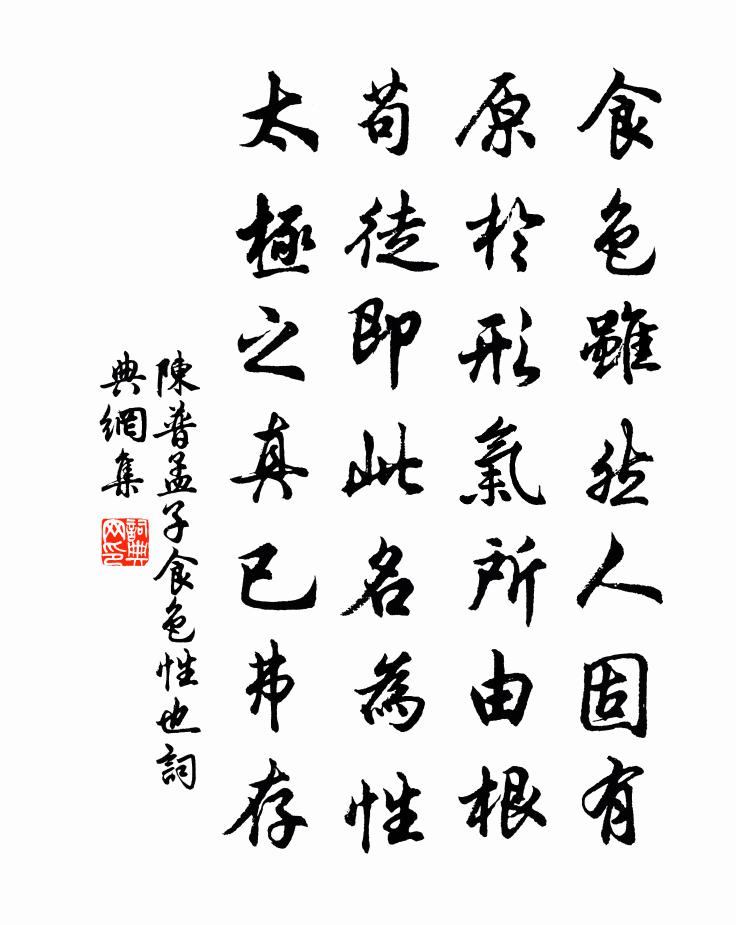 食色雖然人固有
原於形氣所由根
苟徒即此名為性
太極之真已弗存
陳普孟子食色性也詞
典網集
詞典
网印